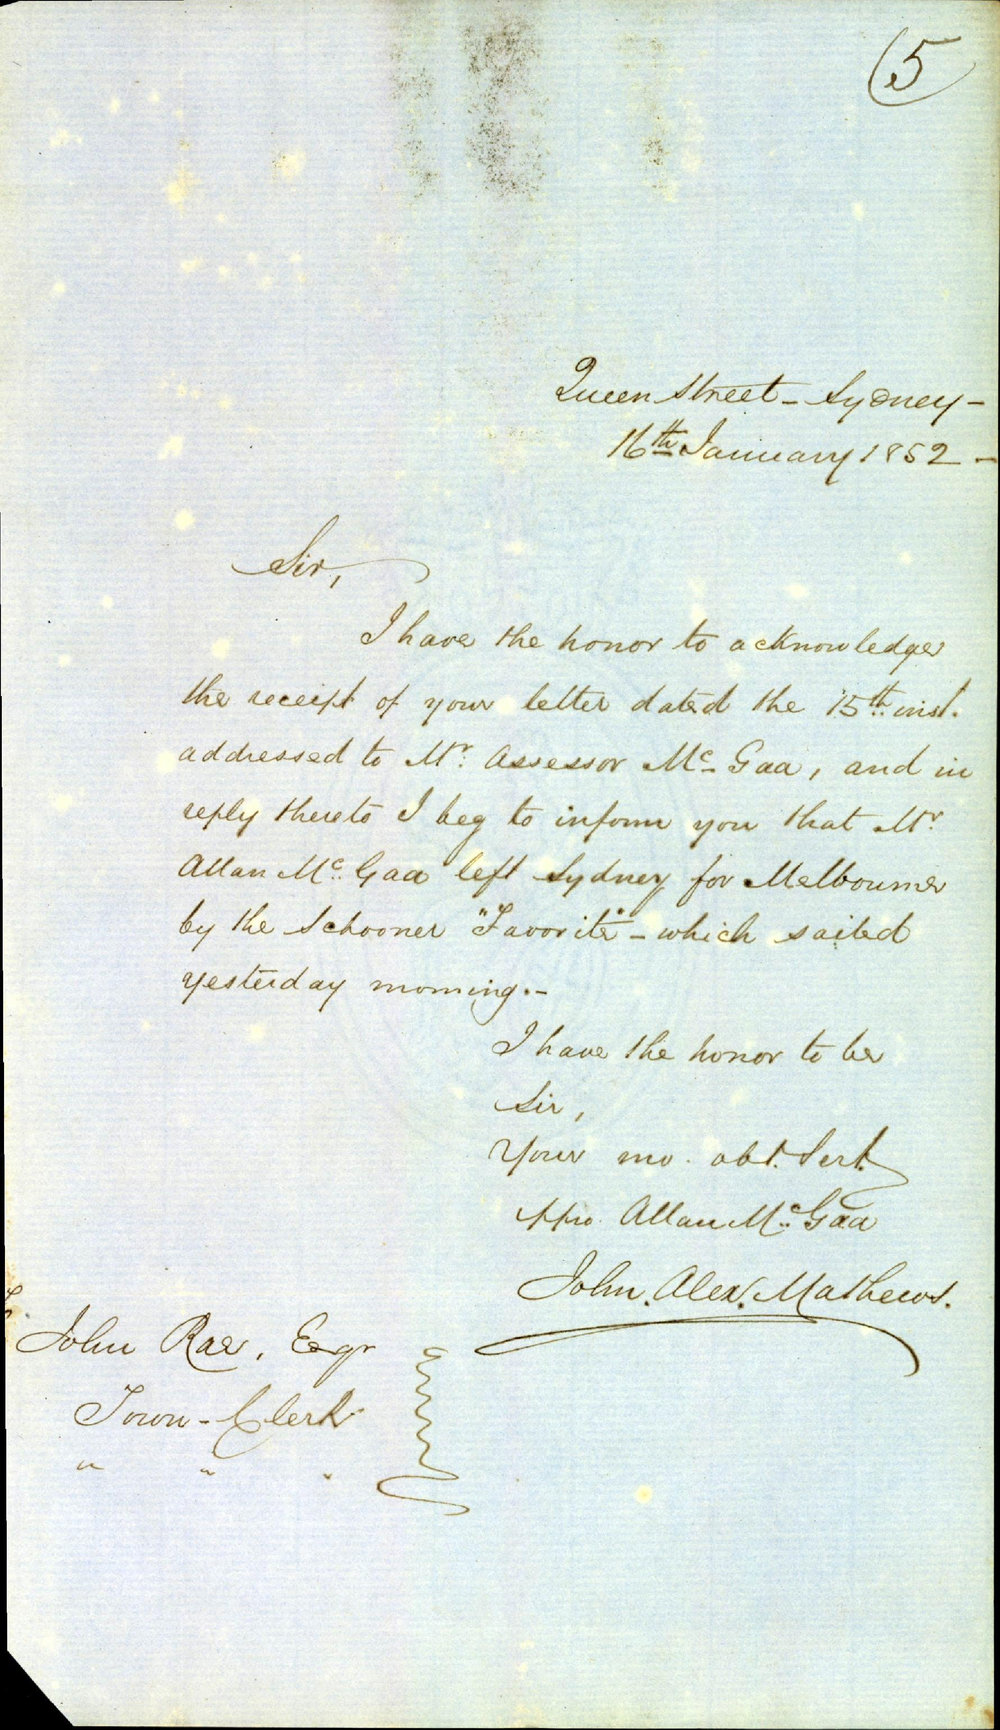 5
Queen Street - Sydney -
16th January 1852 -
Sir,
I have the honor to acknowledge
the receipt of your letter dated the 15th inst.
addressed to Mr. Assessor Mc. Gaa, and in
reply thereto I beg to inform you that Mr.
Allan Mc. Gaa left Sydney for Melbourne
by the Schooner "Favorite" - which sailed
yesterday morning. -
I have the honor to be
Sir,
Your mo. obt. Sert.
ppro. Allan Mc. Gaa
John. Alex. Mathews.
To
John Rae, Esqr
Town - Clerk
" " "